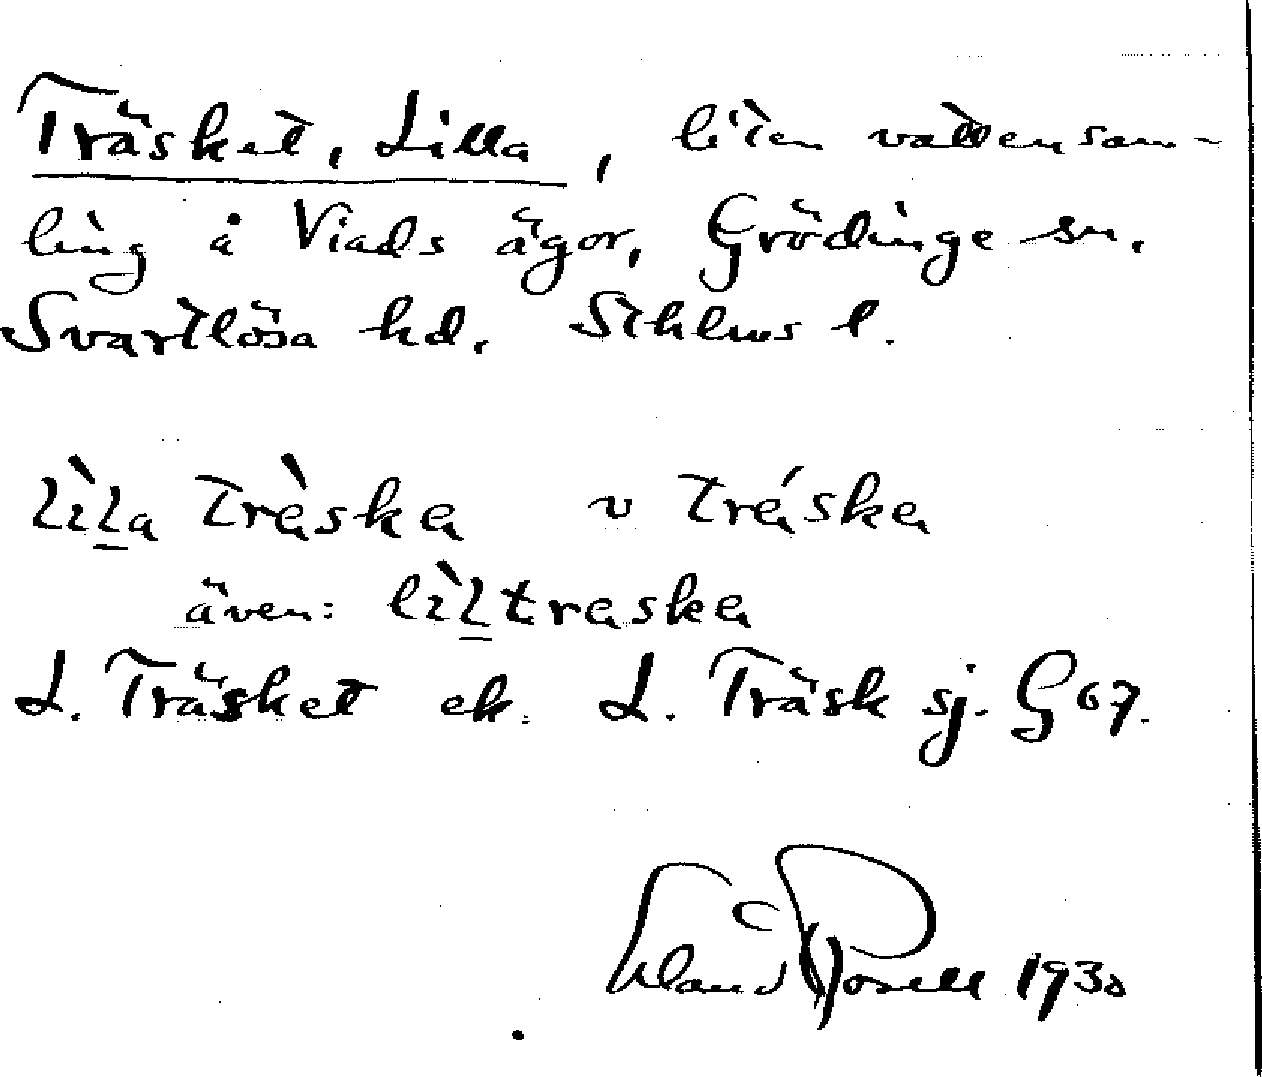 Träsket, Lilla, liten vattensam-
ling å Viads ägor, Grödinge sn.
Svartlösa hd. Sthlms l.
lìla tràska v tráska
även: lìltraska
L. Träsket ek. L. Träsk sj. G 67.
1930